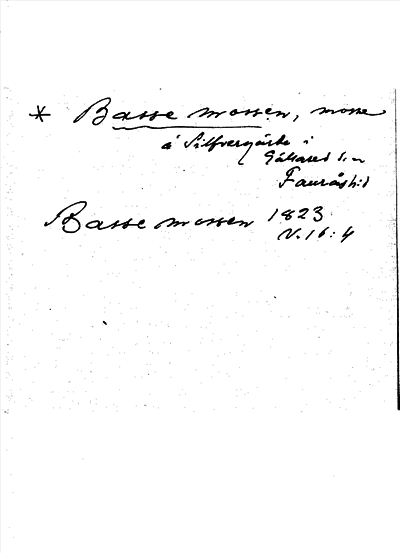 * Basse mossen, mosse
å Silfvergärde i
Gällared sn
Fauråshd
Basse mossen 1823
V.16:4